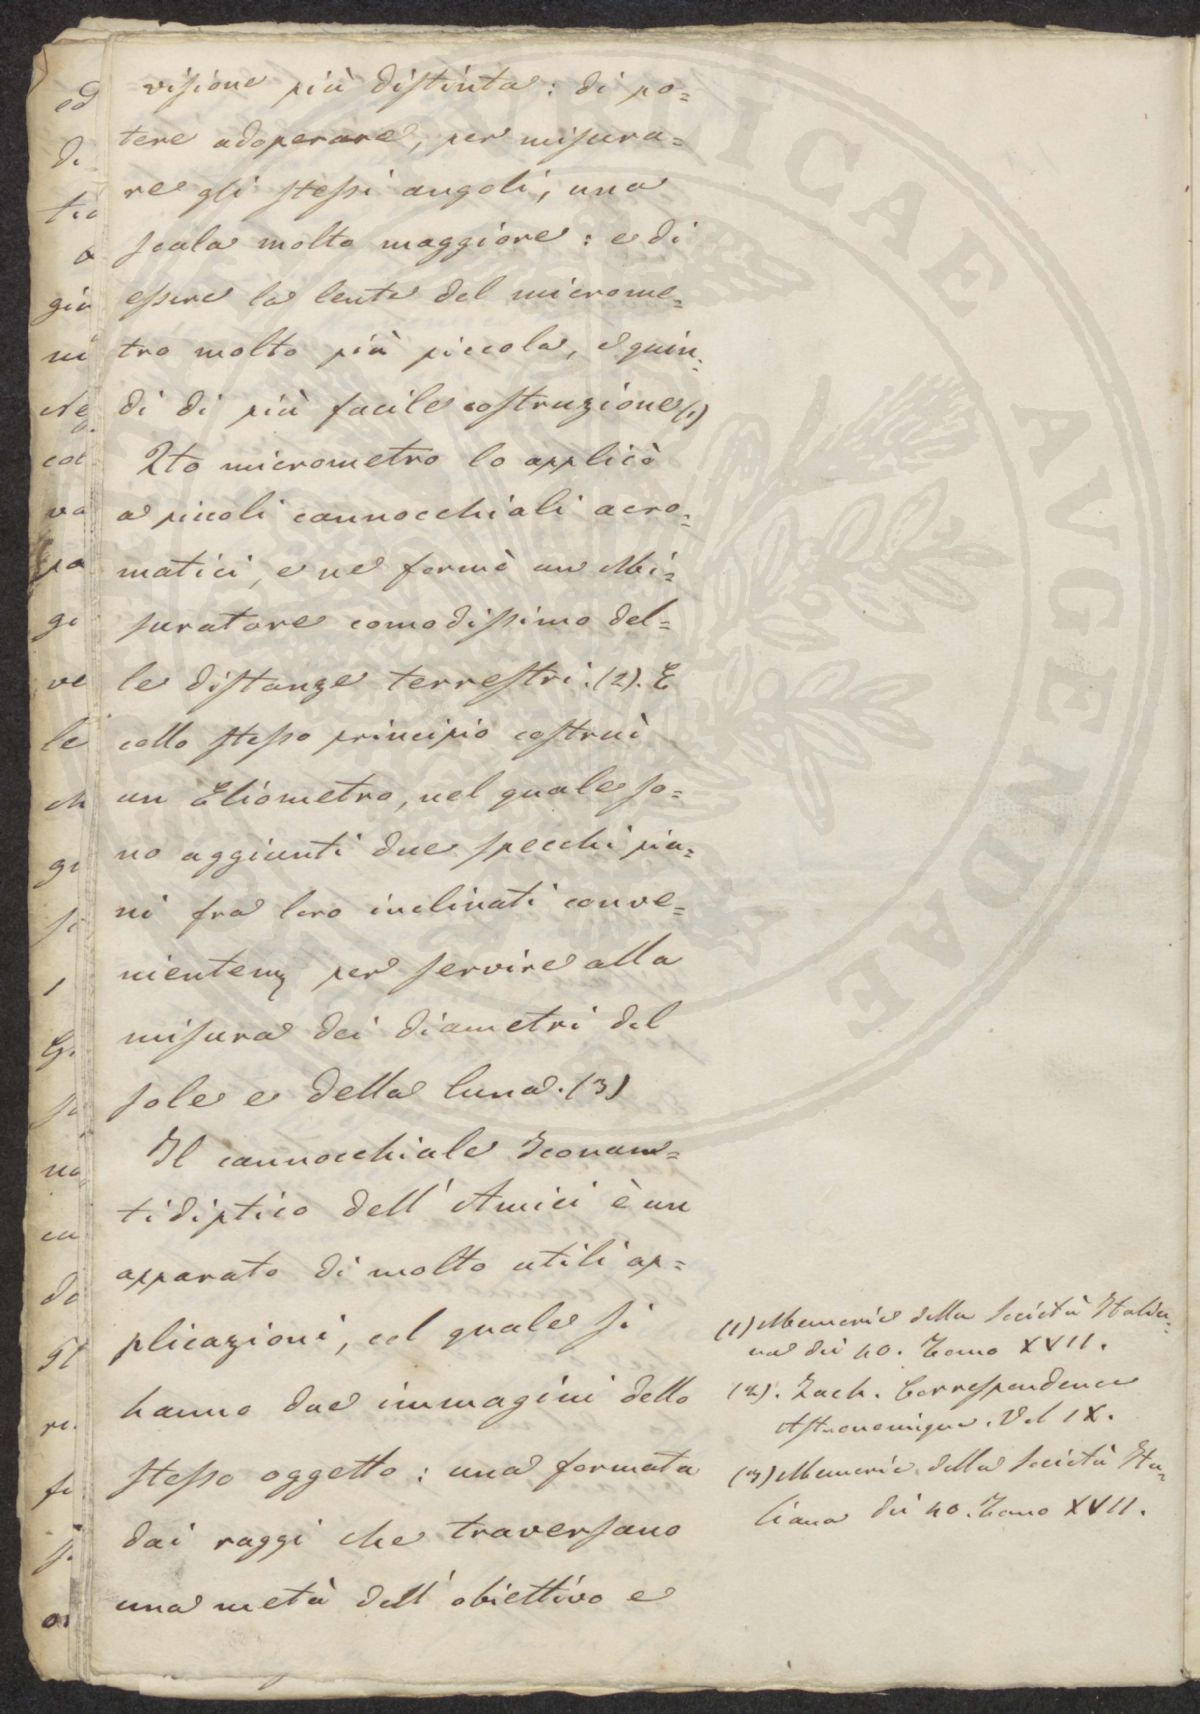 visione più distinta: di po=
tere adoperare, per misura=
re gli stessi angoli, una
scala molto maggiore: e di
essere la lente del microme=
tro molto più piccola, e quin=
di di più facile costruzione (1)
Qto micrometro lo applicò
a piccoli cannocchiali acro=
matici, e ne formò un Mi=
suratore comodissimo del=
le distanze terrestri. (2). E
collo stesso principio costruì
un Eliometro, nel quale so=
no aggiunti due specchi pia=
ni fra loro inclinati conve=
nientem per servire alla
misura dei diametri del
sole e della luna. (3)
Il cannocchiale Iconan=
tidiptico dell' Amici è un
apparato di molto utili ap=
plicazioni, col quale si
hanno due immagini dello
stesso oggetto: una formata
dai raggi che traversano
una metà dell' obiettivo e
(1) Memorie della Società Italia=
na dei 40. Tomo XVII.
(2). Zach. Correspondence
Astronomique. Vol IX.
(3) Memorie della Società Ita=
liana dei 40. Tomo XVII.
ed
di
a
giu
ni
Ne
col
va
pa
ge
ve
le
ch
gi
si
na
da
re
PUBLICAE AVGENDAE